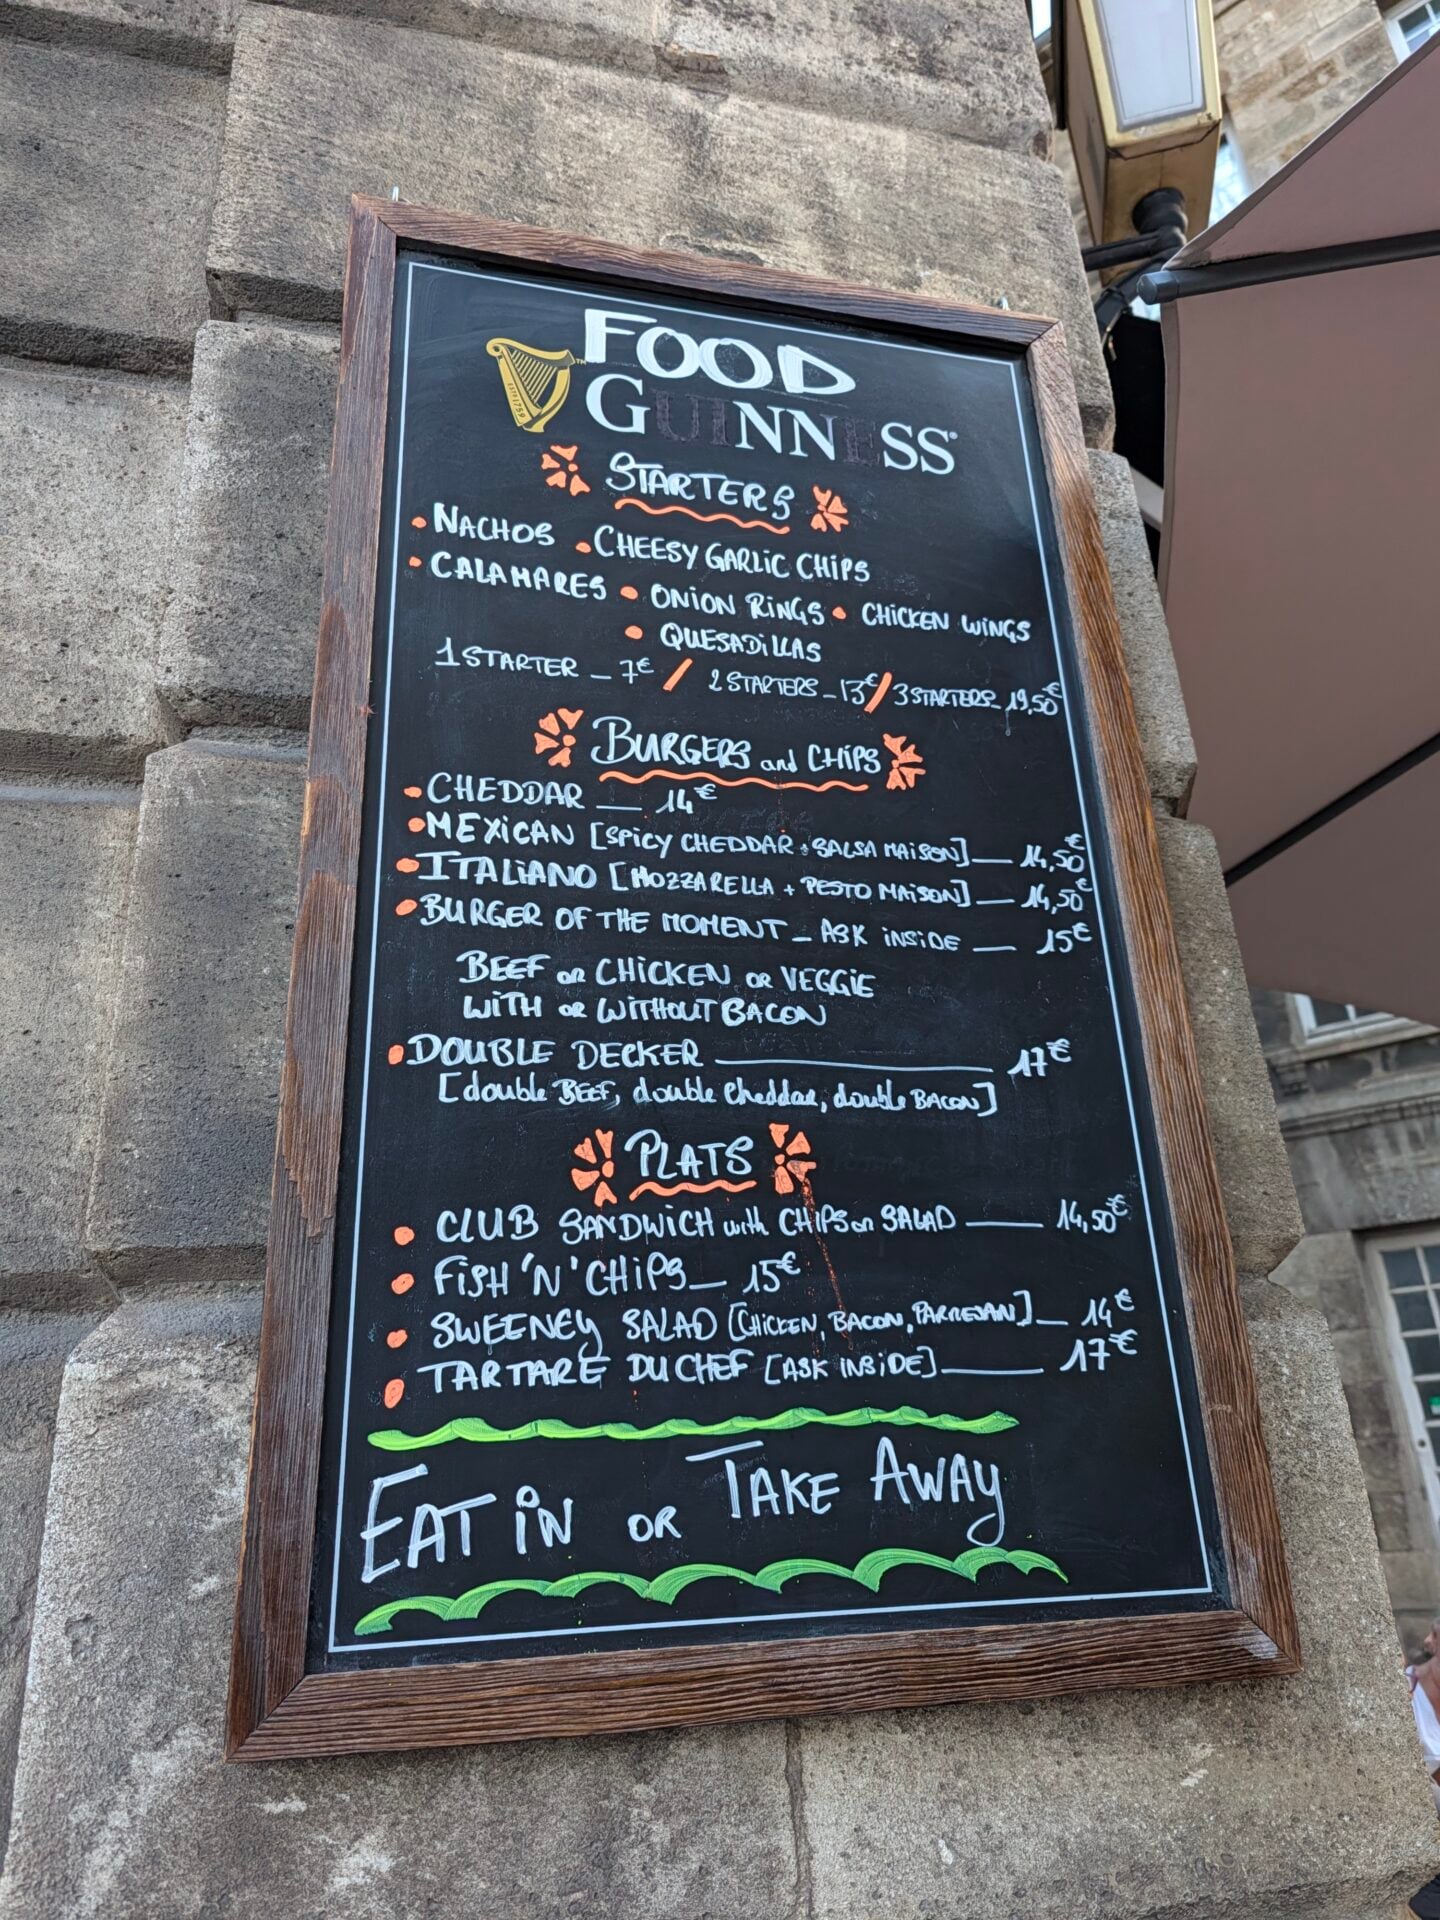 FOOD
ESTD 1759
™
GUINNESS®
STARTERS
• NACHOS • CHEESY GARLIC CHIPS
• CALAMARES • ONION RINGS • CHICKEN WINGS
• QUESADILLAS
1 STARTER _ 7€ / 2 STARTERS _ 13€ / 3 STARTERS _ 19,50€
BURGERS and CHIPS
• CHEDDAR __ 14€
• MEXICAN [SPICY CHEDDAR + SALSA MAISON] __ 14,50€
• ITALIANO [MOZZARELLA + PESTO MAISON] __ 14,50€
• BURGER OF THE MOMENT _ ASK INSIDE __ 15€
BEEF OR CHICKEN OR VEGGIE
WITH OR WITHOUT BACON
• DOUBLE DECKER ____ 17€
[double BEEF, double cheddar, double BACON]
PLATS
• CLUB SANDWICH with CHIPS or SALAD __ 14,50€
• FISH 'N' CHIPS _ 15€
• SWEENEY SALAD [CHICKEN, BACON, PARMESAN] __ 14€
• TARTARE DU CHEF [ASK INSIDE] __ 17€
EAT IN OR TAKE AWAY